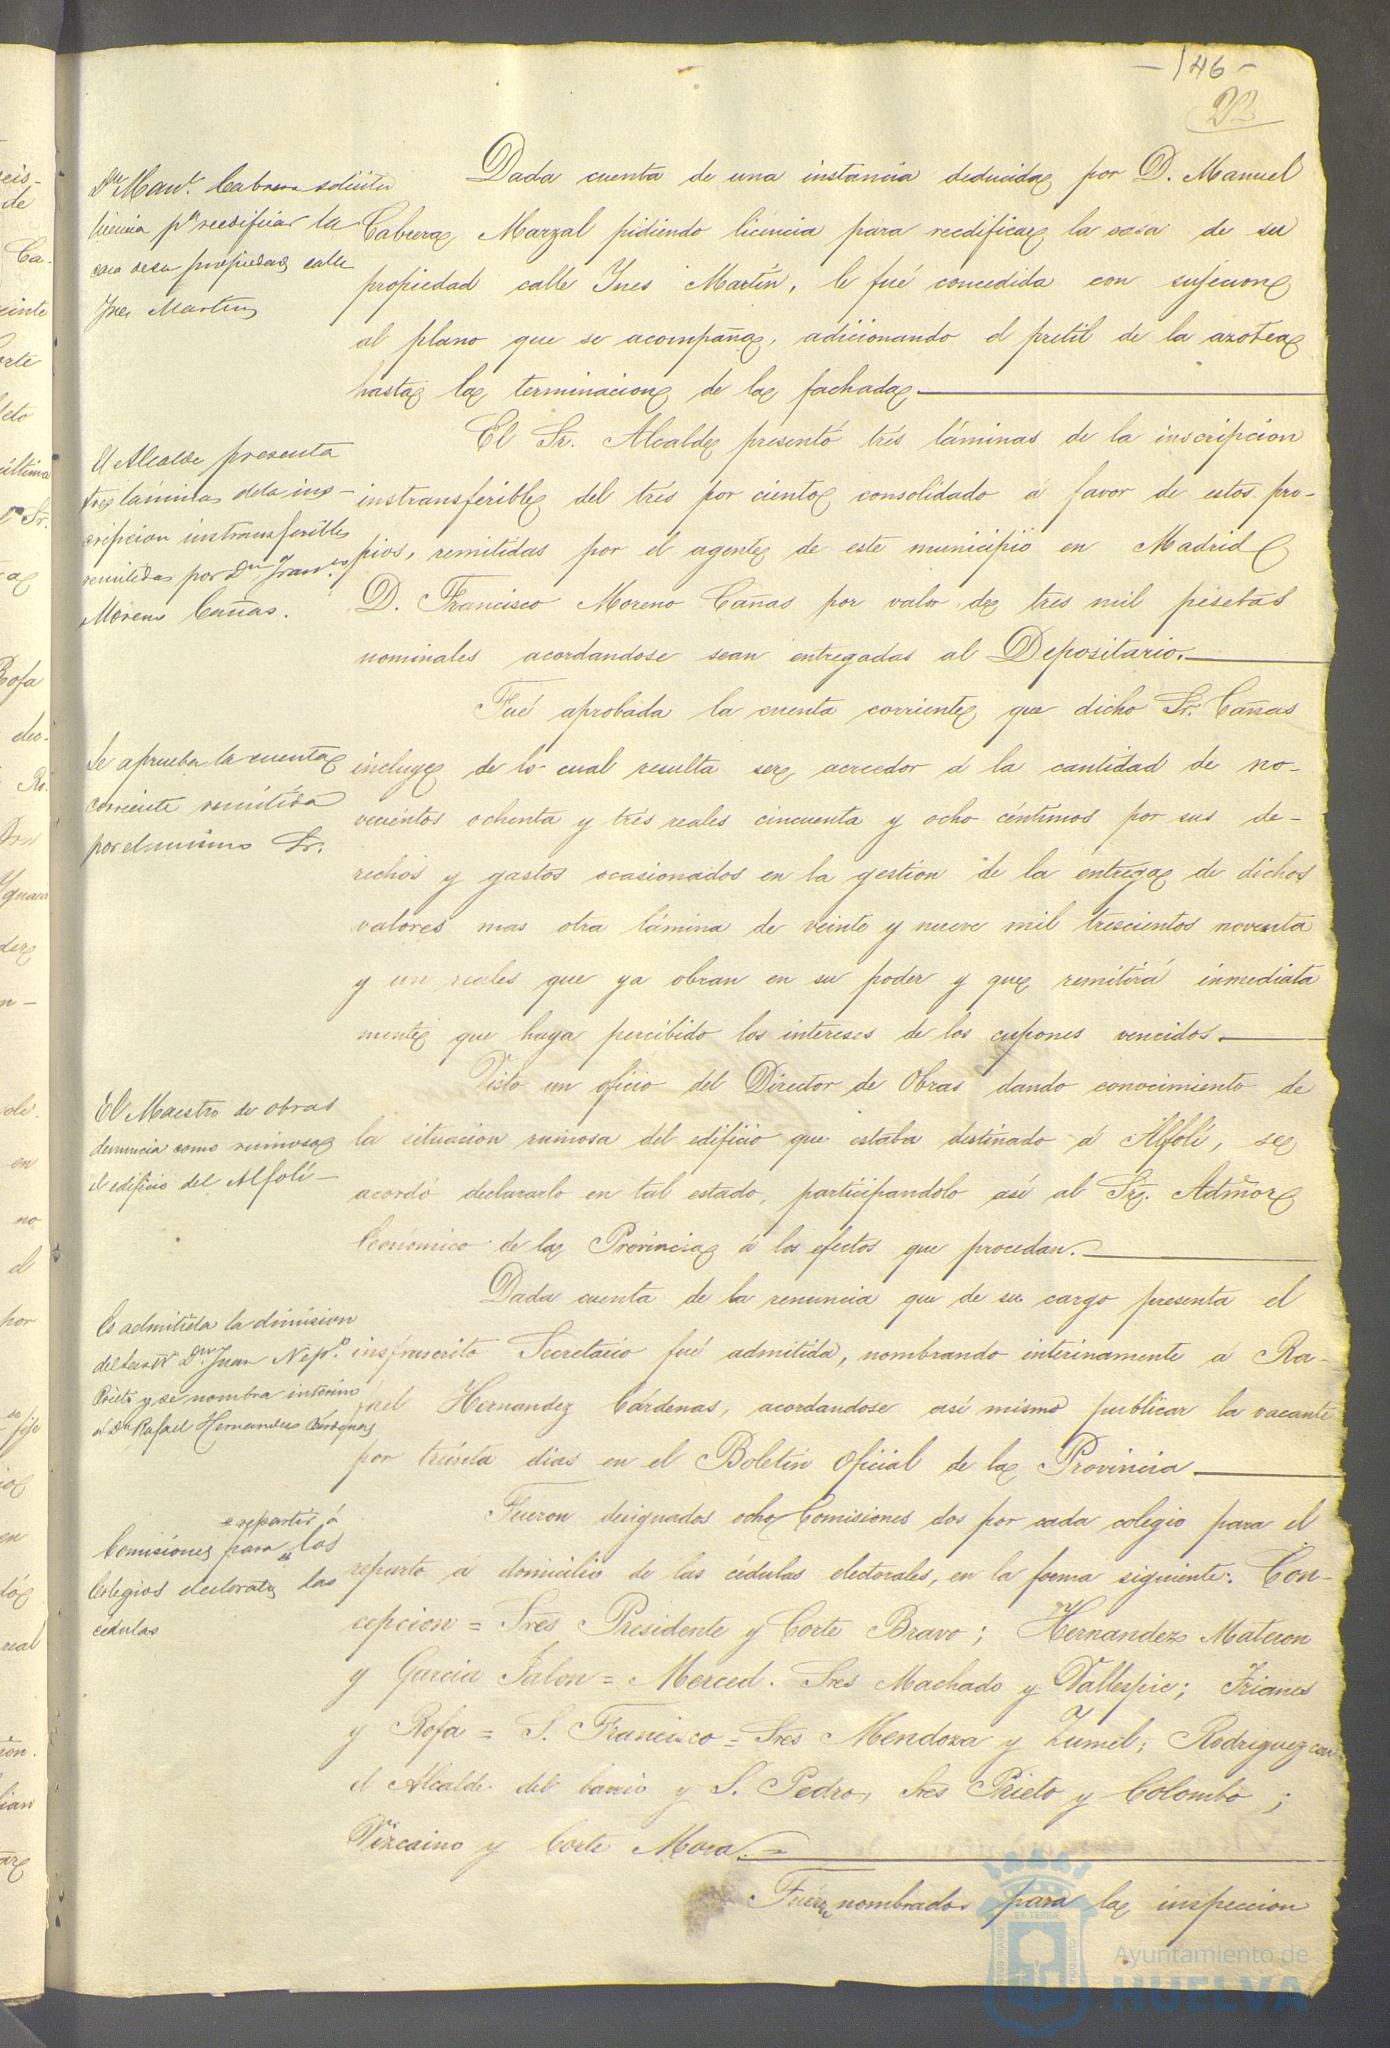 -146-
22
Dn Manl. Cabrera solicita
licencia pa reedificar la
casa de su propiedad calle
Ines Martin
Dada cuenta de una instáncia deducida por D. Manuel
Cabrera Marzal pidiendo licéncia para reedificar la casa de su
propiedad calle Ynes Martin, le fué concedida con sujecion
al plano que se acompaña, adicionando el pretil de la azotea
hasta la terminacion de la fachada
El Alcalde presenta
tres láminas de la ins-
cripcion instransferible
remitidas por Dn Franco
Moreno Cañas.
El Sr. Alcalde presentó trés láminas de la inscripcion
instransferible del trés por ciento consolidado á favor de estos pro-
pios, remitidas por el agente de este municipio en Madrid
D. Francisco Moreno Cañas por valor de tres mil pesetas
nominales acordandose sean entregadas al Depositario.
Se aprueba la cuenta
corriente remitida
por el mismo Sr.
Fué aprobada la cuenta corriente que dicho Sr. Cañas
incluye de lo cual resulta ser acreedor á la cantidad de no-
vecientos ochenta y trés reales cincuenta y ocho céntimos por sus de-
rechos y gastos ocasionados en la gestion de la entrega de dichos
valores mas otra lámina de veinte y nueve mil trescientos noventa
y un reales que ya obran en su poder y que remitirá inmediata
mente que haya percibido los intereses de los cupones vencidos.
El Maestro de obras
denuncia como ruinoso
el edificio del Alfolí-
Visto un oficio del Director de Obras dando conocimiento de
la situacion ruinosa del edificio que estaba destinado á Alfolí, se
acordó declararlo en tal estado, participandolo asi al Sr. Admor
Económico de la Província á los efectos que procedan.
Es admitida la dimision
del Secretº Dn. Juan Nepº.
Prieto y se nombra interino
al Dn Rafael Hernandez Cárdenas
Dada cuenta de la renuncia que de su cargo presenta el
insfrascrito Secretario fué admitida, nombrando interinamente á Ra-
fael Hernandez Cárdenas, acordandose asi mismo publicar la vacante
por treinta dias en el Boletin Oficial de la Provincia
repartir á
Comisiones para los
Colegios electorales las
cedulas
Fueron designados ocho Comisiones dos por cada colegio para el
reparto á domicilio de las cédulas electorales, en la forma siguiente: Con-
cepcion = Sres Presidente y Corte Bravo; Hernandez Materon
y Garcia Jalon = Merced. Sres Machado y Vallespin; Trianes
y Rofa = S. Francisco = Sres Mendoza y Zumel; Rodriguez con
el Alcalde del barrio y S. Pedro, Sres Prieto y Colombo;
Vizcaino y Corte Mora. =
Fueron nombrados para la inspeccion
Ayuntamiento de
HUELVA